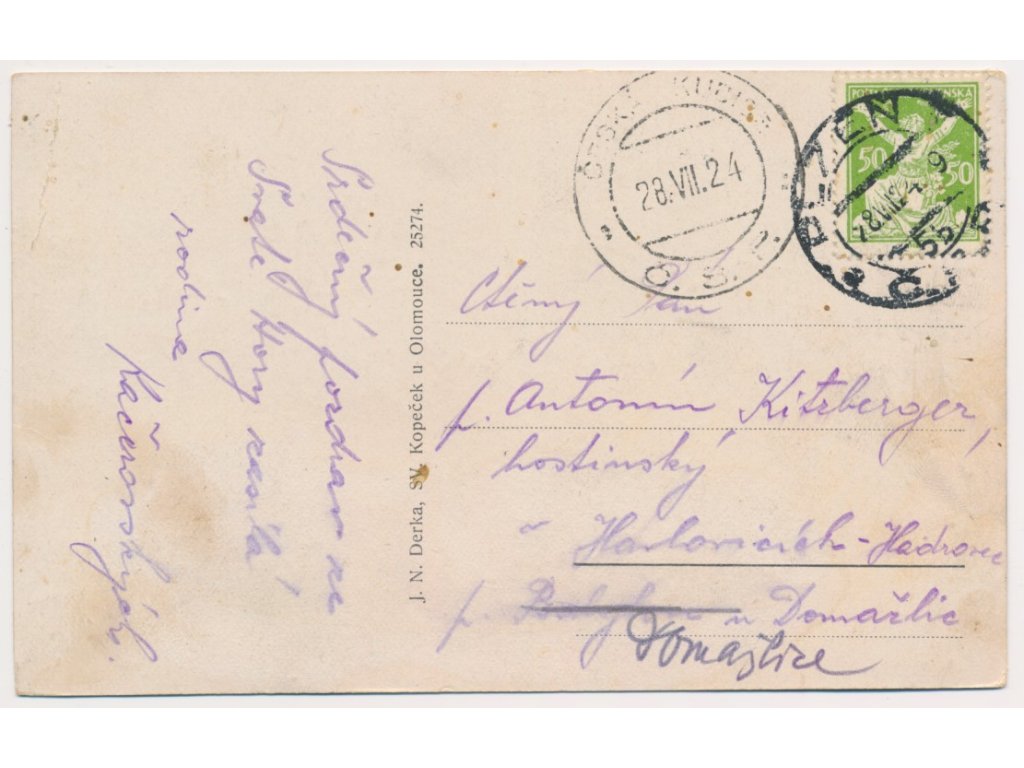 Srdečný pozdrav ze
Svaté Hory zasílá
rodina
Kačerovských.
J. N. Derka, SV. Kopeček u Olomouce. 25274.
ČESKÁ KUBICE
28.VII.24
Č. S. P.
POŠTA ČESKOSLOVENSKÁ
50 50
PLZEŇ
28.VII.24 9
Ctěný Pán
p. Antonín Kitzberger,
hostinský
v Havlovicích-Hadrovec
p. u Domažlic
Domažlice